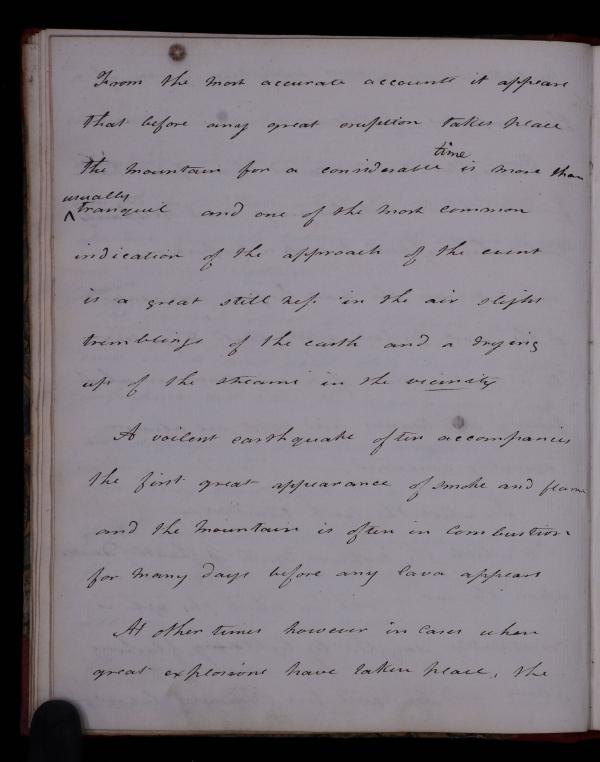 From the most accurate accounts it appears
that before any great eruption takes place
the mountain for a considerable time is more than
usually tranquil and one of the most common
indication of the approach of the event
is a great still ness in the air slight
tremblings of the earth and a drying
up of the streams in the vicinity
A voilent earthquake often accompanies
the first great appearance of smoke and flame
and the mountain is often in combustion
for many days before any lava appears
At other times however in cases when
great explosions have taken place, the